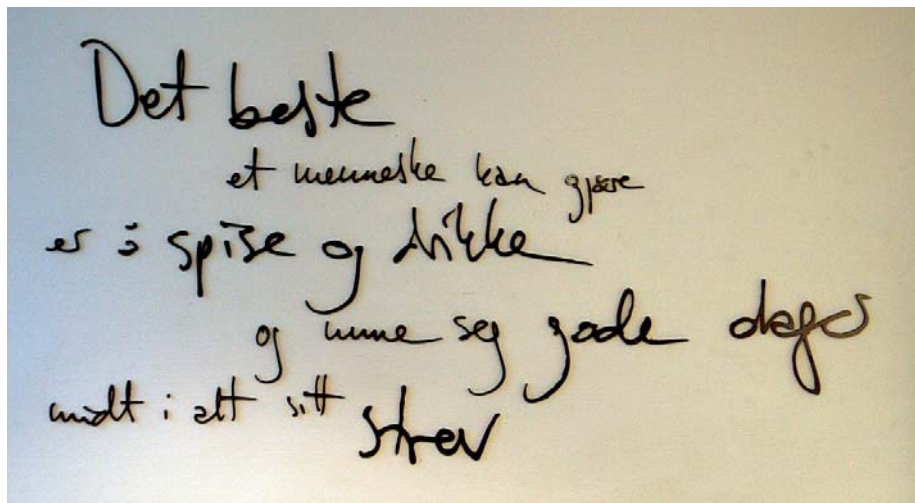 Det beste
et menneske kan gjøre
er å spise og drikke
og unne seg gode dager
midt i alt sitt
strev